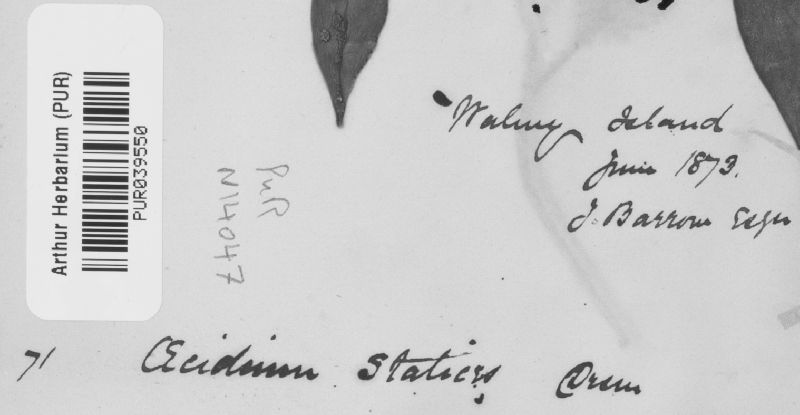 Arthur Herbarium (PUR)
PUR039550
PUR
N14047
Walney Island
June 1873.
J. Barrow Esqr
71 Œcidium Statices